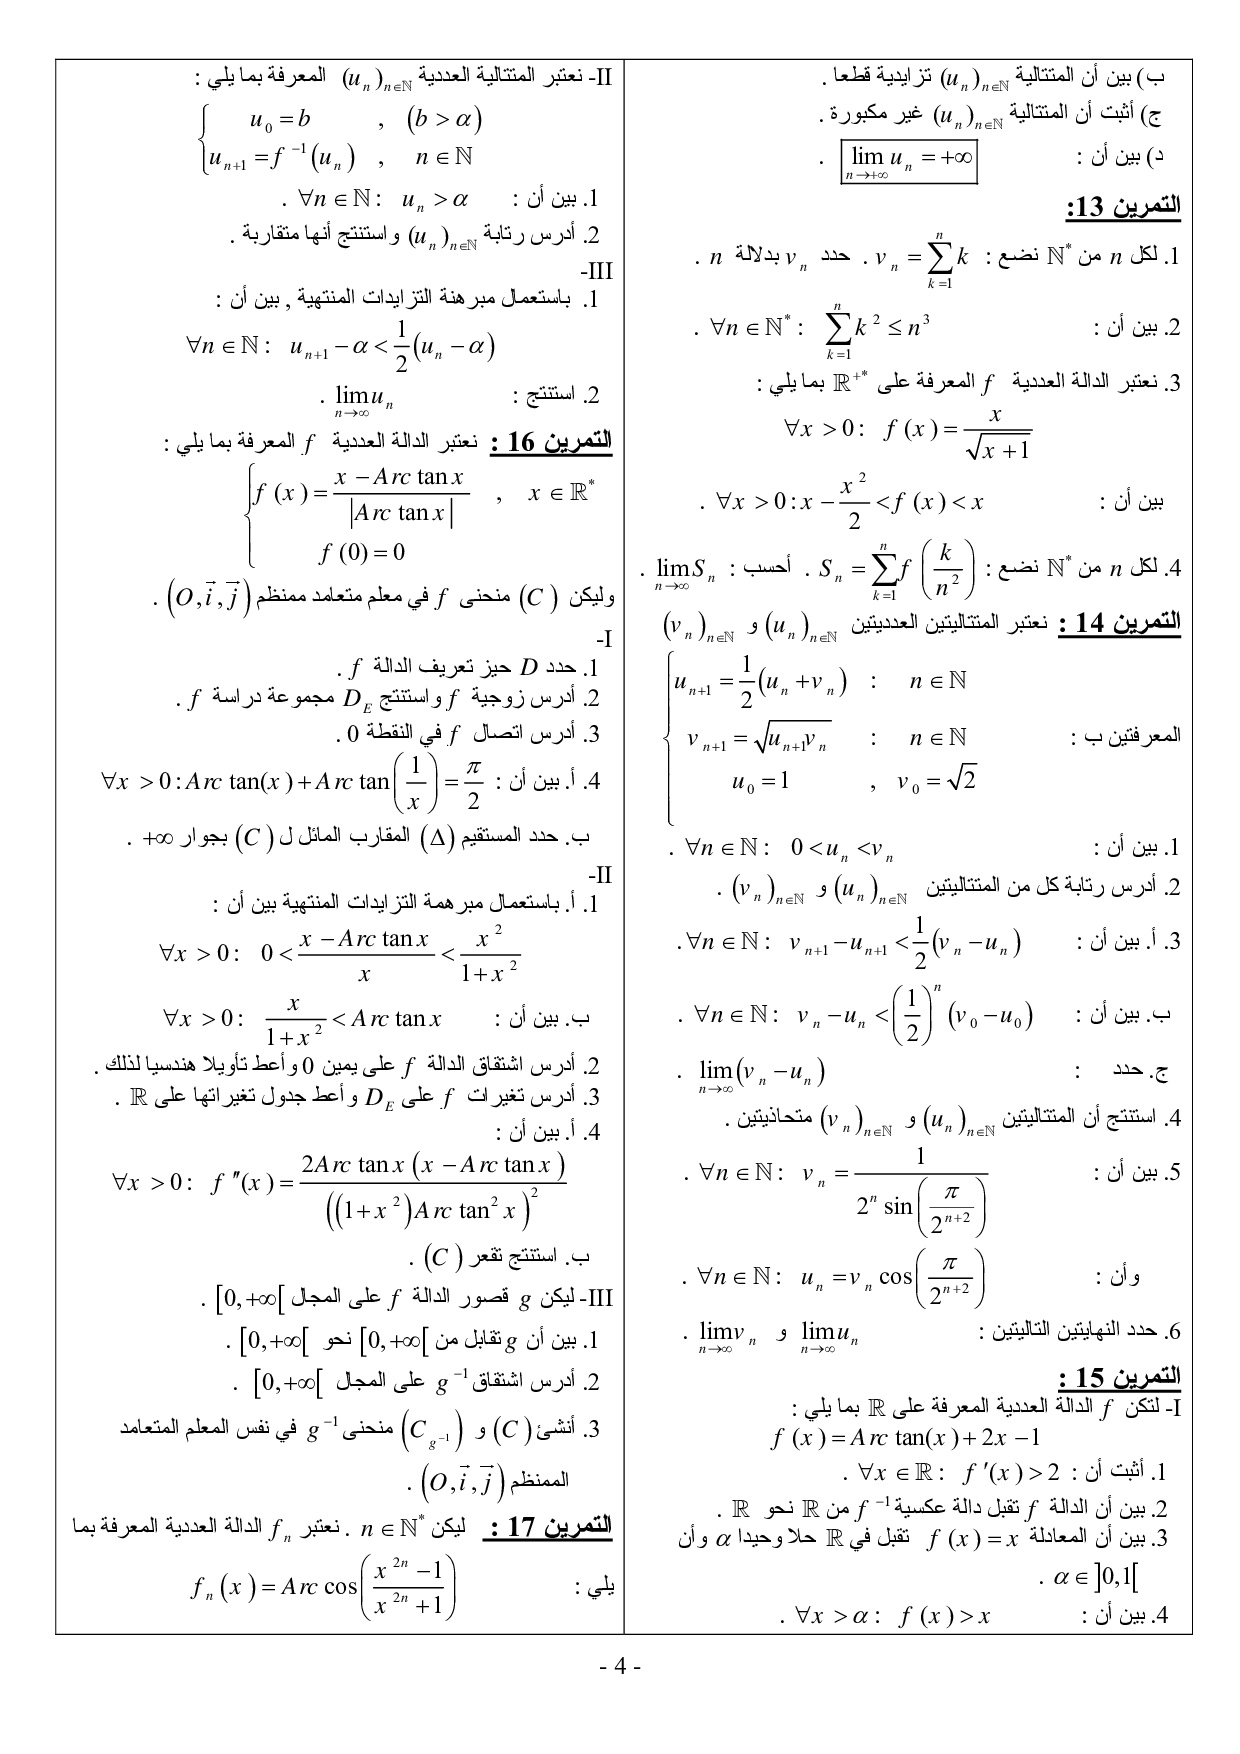 ب) بين أن المتتالية (u_n)_{n∈ℕ} تزايدية قطعا .
ج) أثبت أن المتتالية (u_n)_{n∈ℕ} غير مكبورة .
د) بين أن : lim_{n→+∞} u_n = +∞ .
التمرين 13:
1. لكل n من ℕ* نضع : v_n = ∑_{k=1}^{n} k . حدد v_n بدلالة n .
2. بين أن : ∀n∈ℕ* : ∑_{k=1}^{n} k² ≤ n³ .
3. نعتبر الدالة العددية f المعرفة على ℝ⁺* بما يلي :
∀x > 0 : f(x) = x/√(x+1)
بين أن : ∀x > 0 : x − x²/2 < f(x) < x .
4. لكل n من ℕ* نضع : S_n = ∑_{k=1}^{n} f(k/n²) . أحسب : lim_{n→∞} S_n .
التمرين 14 : نعتبر المتتاليتين العدديتين (u_n)_{n∈ℕ} و (v_n)_{n∈ℕ}
u_{n+1} = 1/2 (u_n + v_n) : n∈ℕ
المعرفتين ب : v_{n+1} = √(u_{n+1}v_n) : n∈ℕ
u_0 = 1 , v_0 = √2
1. بين أن : ∀n∈ℕ : 0 < u_n < v_n .
2. أدرس رتابة كل من المتتاليتين (u_n)_{n∈ℕ} و (v_n)_{n∈ℕ} .
3. أ. بين أن : ∀n∈ℕ : v_{n+1} − u_{n+1} < 1/2 (v_n − u_n) .
ب. بين أن : ∀n∈ℕ : v_n − u_n < (1/2)^n (v_0 − u_0) .
ج. حدد : lim_{n→∞} (v_n − u_n) .
4. استنتج أن المتتاليتين (u_n)_{n∈ℕ} و (v_n)_{n∈ℕ} متحاذيتين .
5. بين أن : ∀n∈ℕ : v_n = 1/(2^n sin(π/2^{n+2})) .
وأن : ∀n∈ℕ : u_n = v_n cos(π/2^{n+2}) .
6. حدد النهايتين التاليتين : lim_{n→∞} u_n و lim_{n→∞} v_n .
التمرين 15 :
I- لتكن f الدالة العددية المعرفة على ℝ بما يلي :
f(x) = Arc tan(x) + 2x − 1
1. أثبت أن : ∀x∈ℝ : f′(x) > 2 .
2. بين أن الدالة f تقبل دالة عكسية f⁻¹ من ℝ نحو ℝ .
3. بين أن المعادلة f(x) = x تقبل في ℝ حلا وحيدا α وأن
α ∈ ]0,1[ .
4. بين أن : ∀x > α : f(x) > x .
II- نعتبر المتتالية العددية (u_n)_{n∈ℕ} المعرفة بما يلي :
u_0 = b , (b > α)
u_{n+1} = f⁻¹(u_n) , n∈ℕ
1. بين أن : ∀n∈ℕ : u_n > α .
2. أدرس رتابة (u_n)_{n∈ℕ} واستنتج أنها متقاربة .
III-
1. باستعمال مبرهنة التزايدات المنتهية , بين أن :
∀n∈ℕ : u_{n+1} − α < 1/2 (u_n − α)
2. استنتج : lim_{n→∞} u_n .
التمرين 16 : نعتبر الدالة العددية f المعرفة بما يلي :
f(x) = (x − Arc tan x)/|Arc tan x| , x∈ℝ*
f(0) = 0
وليكن (C) منحنى f في معلم متعامد ممنظم (O, i⃗, j⃗) .
I-
1. حدد D حيز تعريف الدالة f .
2. أدرس زوجية f واستنتج D_E مجموعة دراسة f .
3. أدرس اتصال f في النقطة 0 .
4. أ. بين أن : ∀x > 0 : Arc tan(x) + Arc tan(1/x) = π/2
ب. حدد المستقيم (Δ) المقارب المائل ل (C) بجوار +∞ .
II-
1. أ. باستعمال مبرهمة التزايدات المنتهية بين أن :
∀x > 0 : 0 < (x − Arc tan x)/x < x²/(1+x²)
ب. بين أن : ∀x > 0 : x/(1+x²) < Arc tan x
2. أدرس اشتقاق الدالة f على يمين 0 وأعط تأويلا هندسيا لذلك .
3. أدرس تغيرات f على D_E وأعط جدول تغيراتها على ℝ .
4. أ. بين أن :
∀x > 0 : f″(x) = 2Arc tan x (x − Arc tan x)/((1+x²)Arc tan² x)²
ب. استنتج تقعر (C) .
III- ليكن g قصور الدالة f على المجال [0,+∞[ .
1. بين أن g تقابل من [0,+∞[ نحو [0,+∞[ .
2. أدرس اشتقاق g⁻¹ على المجال [0,+∞[ .
3. أنشئ (C) و (C_{g⁻¹}) منحنى g⁻¹ في نفس المعلم المتعامد
الممنظم (O, i⃗, j⃗) .
التمرين 17 : ليكن n∈ℕ* . نعتبر f_n الدالة العددية المعرفة بما
يلي : f_n(x) = Arc cos((x^{2n} − 1)/(x^{2n} + 1))
- 4 -